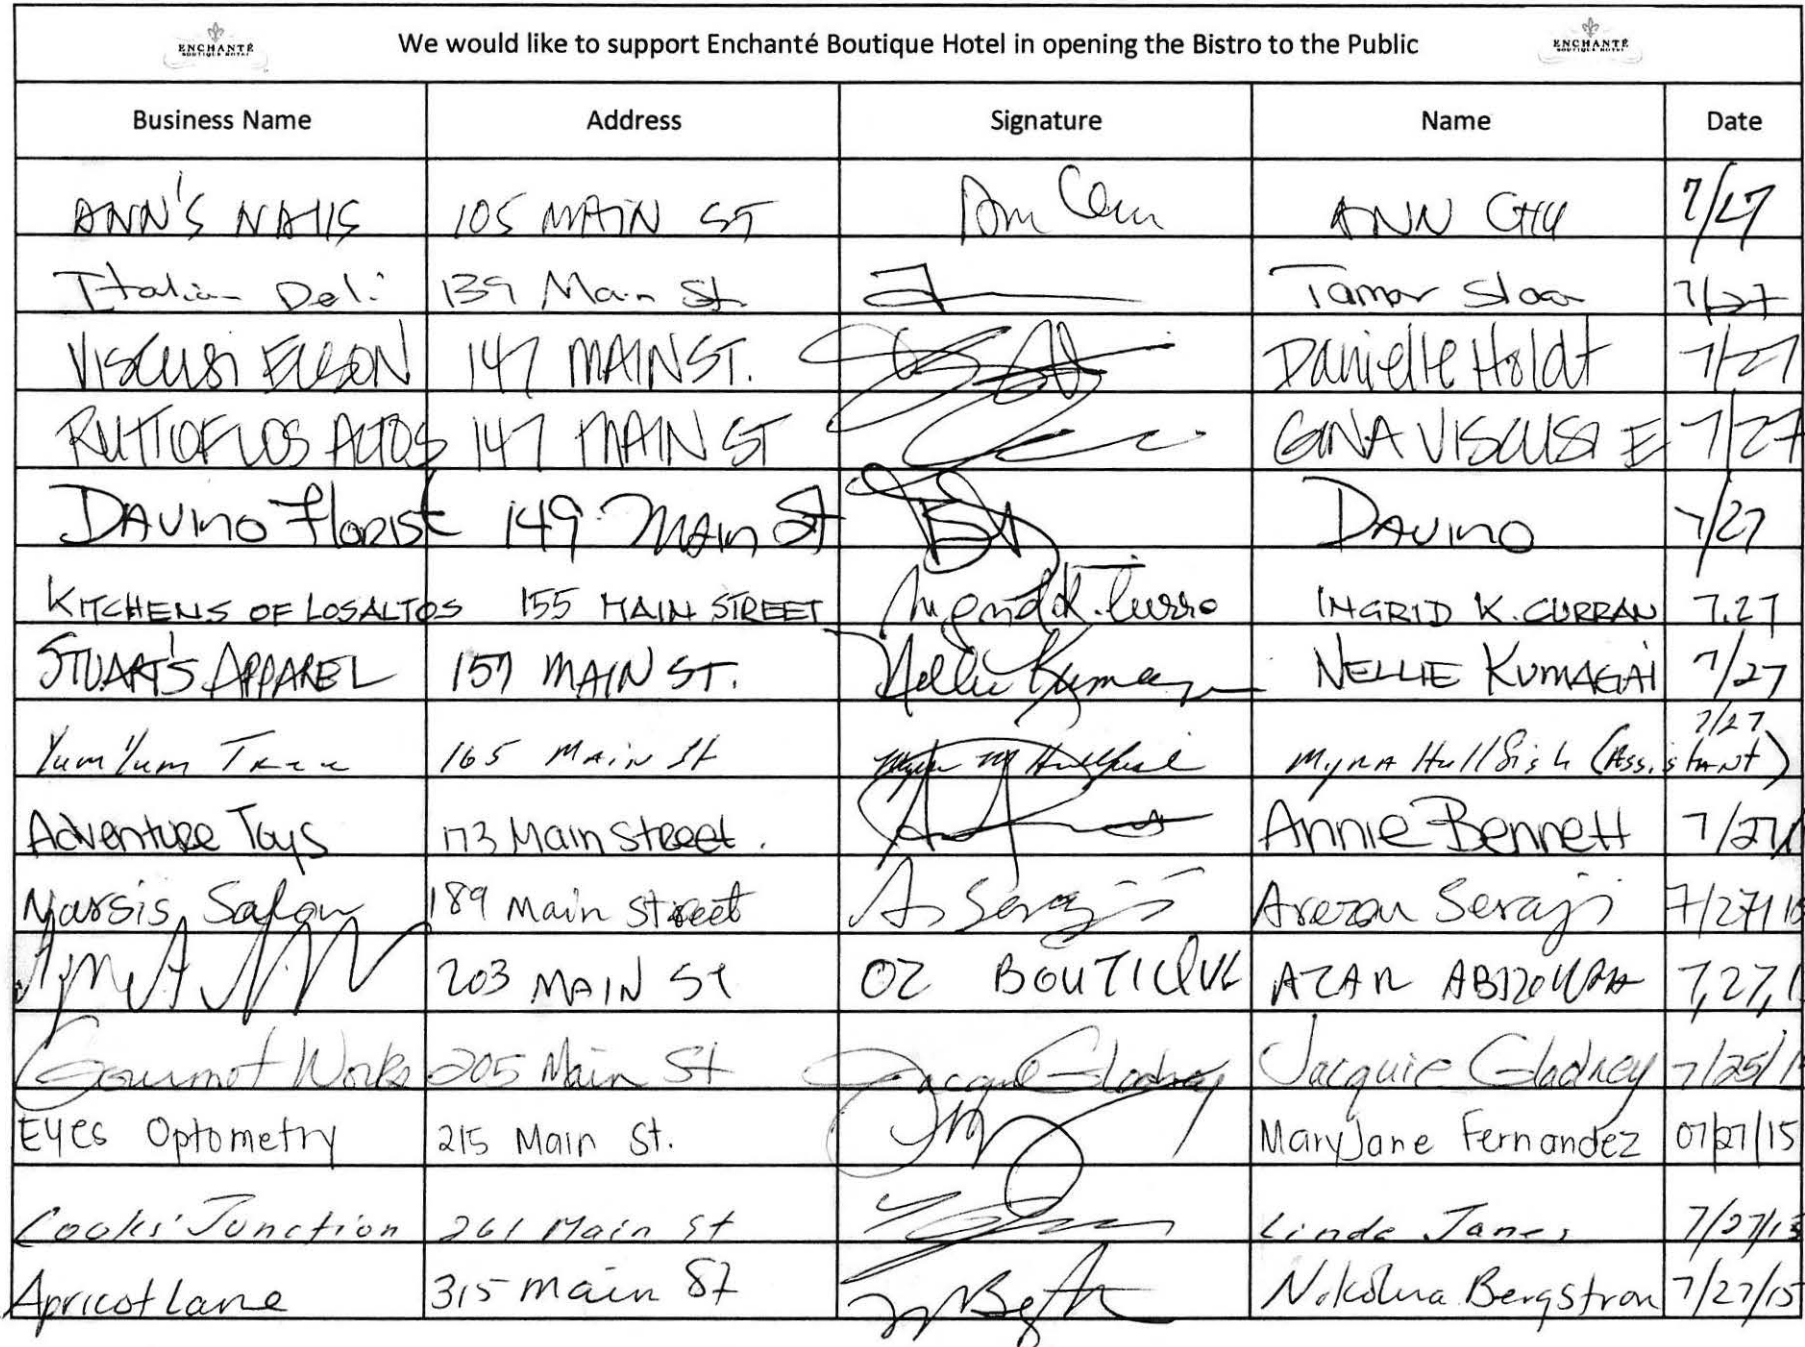 ENCHANTÉ BOUTIQUE HOTEL We would like to support Enchanté Boutique Hotel in opening the Bistro to the Public ENCHANTÉ BOUTIQUE HOTEL
Business Name Address Signature Name Date
ANN'S NAILS 105 MAIN ST ANN CHU 7/27
Italian Deli 139 Main St. Tamar Sloan 7/27
VISCUSI ELSON 147 MAIN ST. Danielle Holdt 7/27
RUTI OF LOS ALTOS 147 MAIN ST GINA VISCUSI E 7/27
DAVINO Florist 149 Main St DAVINO 7/27
KITCHENS OF LOS ALTOS 155 MAIN STREET INGRID K. CURRAN 7.27
STUART'S APPAREL 157 MAIN ST. Nellie NELLIE KUMAGAI 7/27
Yum Yum Tree 165 Main St Myrna Hullfish (Assistant) 7/27
Adventure Toys 173 Main Street. Annie Bennett 7/27/
Narsis Salon 189 Main Street A. Seraji Arezou Seraji 7/27/15
203 MAIN St OZ BOUTIQUE AZAR 7,27,1
Gourmet Works 205 Main St Jacquie Gladney 7/25/1
Eyes Optometry 215 Main St. MaryJane Fernandez 07/27/15
Cooks' Junction 261 Main St Linda Janes 7/27/15
Apricot Lane 315 Main St Nikolina Bergstrom 7/27/15